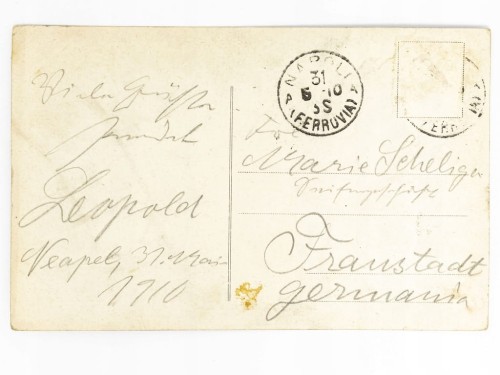 Viele Grüße
sendet
Leopold
Neapel, 31. Mai
1910
NAPOLI
31
5 10
(FERRUVIA)
Frl.
Marie Scheliger
Seifengeschäft
Fraustadt
germania